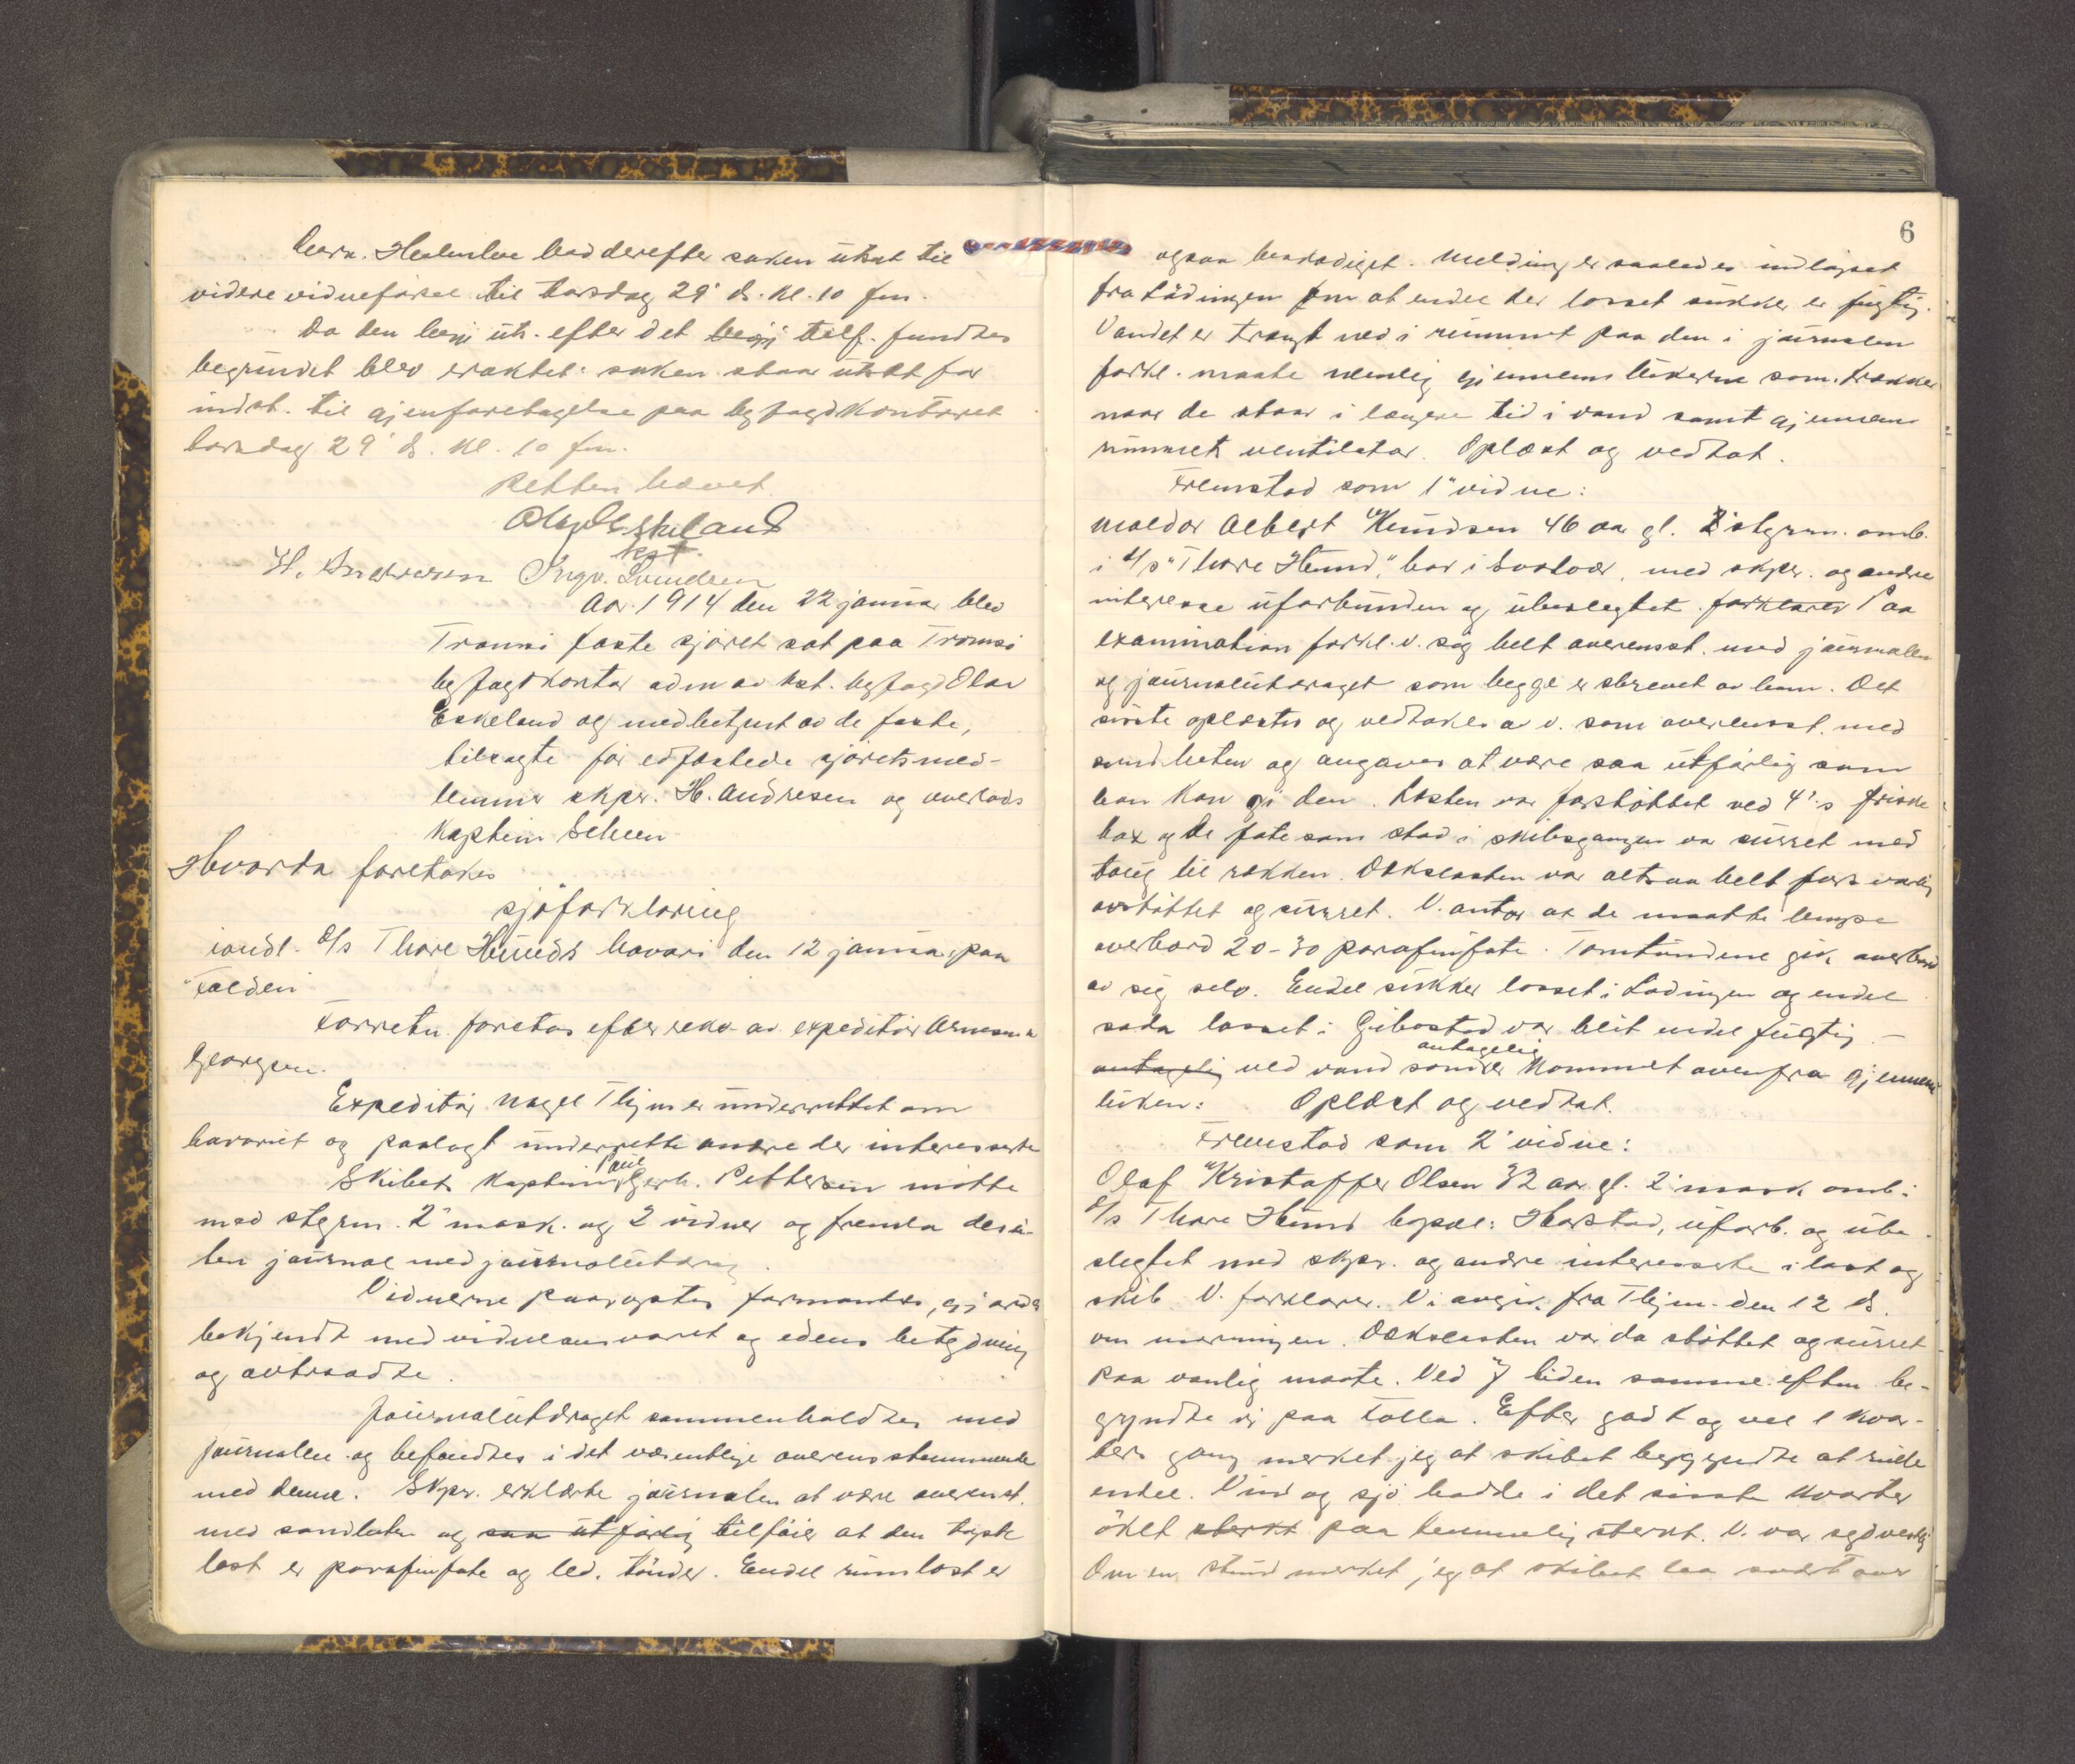 bad derefter saken utsat til
videre vidneførsel til torsdag 29' ds. kl. 10 fm.
Da den beg. uts. efter det tilf. fundtes
begrundet blev eraktet: saken staar utsatt for
indst. til gjenforetagelse paa byfogdkontoret
torsdag 29' ds. kl. 10 fm.
Retten hævet
Olav Eskeland
kst.
H. Andresen Ingv. Svendsen
Aar 1914 den 22 januar blev
Tromsö faste sjöret sat paa Tromsö
byfogdkontor adm av kst. byfogd Olav
Eskeland og medbetjent av de faste,
tilsagte för edfæstede sjöretsmed-
lemmer skpr. H. Andresen og overlods
Kaptein Scheen
Hvorda foretokes
sjöforklaring
i anl. D/s Thore Hunds havari den 12 januar paa
Folden
Forretn. foretas efter rekv. av expeditör Arnesen &
Georgsen.
Expeditör Nagel Thjem er underrettet om
havariet og paalagt underrette andre der interesserte
Skibets Kaptein Paul Gerh. Pettersen mötte
med stgrm. 2' mask. og 2 vidner og fremla desu-
ten journal med journalutdrag.
Vidnerne paaroptes formantes, gjordes
bekjendt med vidneansvaret og edens betydning
og avtraadte.
Journalutdraget sammenholdtes med
journalen og befandtes i det væsentlige overensstemmende
med denne. Skpr. erklærte journalen at være overenst.
med sandheten og saa utförlig tilföier at den tapte
last er parafinfate og led. tönder. Endel rumlast er
6
ogsaa beskadiget. Melding er saaledes indlöpet
fra Lödingen om at endel der losset sukker er fugtig.
Vandet er trængt ned i rummet paa den i journalen
forkl. maate nemlig gjennem lukerne som trækker
naar de staar i længere tid i vand samt gjennem
rummets ventilator. Oplæst og vedtat.
Fremstod som 1' vidne:
Moldor Albert Knudsen 46 aar gl. stgrm. omb.
i D/s "Thore Hund", bor i Svolvær, med skpr. og andre
interesse uforbunden og ubeslegtet. forklarer Paa
examination forkl. v. sig helt overensst. med journalen
og journalutdraget som begge er skrevet av ham. Det
sidste oplæstes og vedtokes av v. som overensst. med
sandheten og angaves at være saa utförlig som
han kan gi den. Lasten var forstöttet ved 4" s friske
box og de fate som stod i skibsgangen var surret med
toug til rækken. Dækslasten var altsaa helt forsvarlig
avstöttet og surret. V. antar at de maatte lempe
overbord 20-30 parafinfate. Tomtundene gik overbord
av sig selv. Endel sukker losset i Lödingen og endel
soda losset i Gibostad var blit endel fugtig –
antagelig ved vand som antagelig er kommet ovenfra gjennem
luken: Oplæst og vedtat.
Fremstod som 2' vidne:
Olaf Kristoffer Olsen 32 aar gl. 2' mask omb.
D/s Thore Hund bopæl: Harstad, uforb. og ube-
slegtet med skpr. og andre interesserte i last og
skib. V. forklarer. Vi avgik fra Thjem den 12 ds.
om morningen. Dækslasten var da stöttet og surret
paa vanlig maate. Ved 7 tiden samme efterm. be-
gyndte vi paa Folla. Efter godt og vel 1 kvar-
ters gang merket jeg at skibet begyndte at rulle
endel. Vind og sjö hadde i det sidste kvarter
öket sterkt paa temmelig sterkt. V. var sydvestlig
Om en stund merket jeg at skibet laa svært over